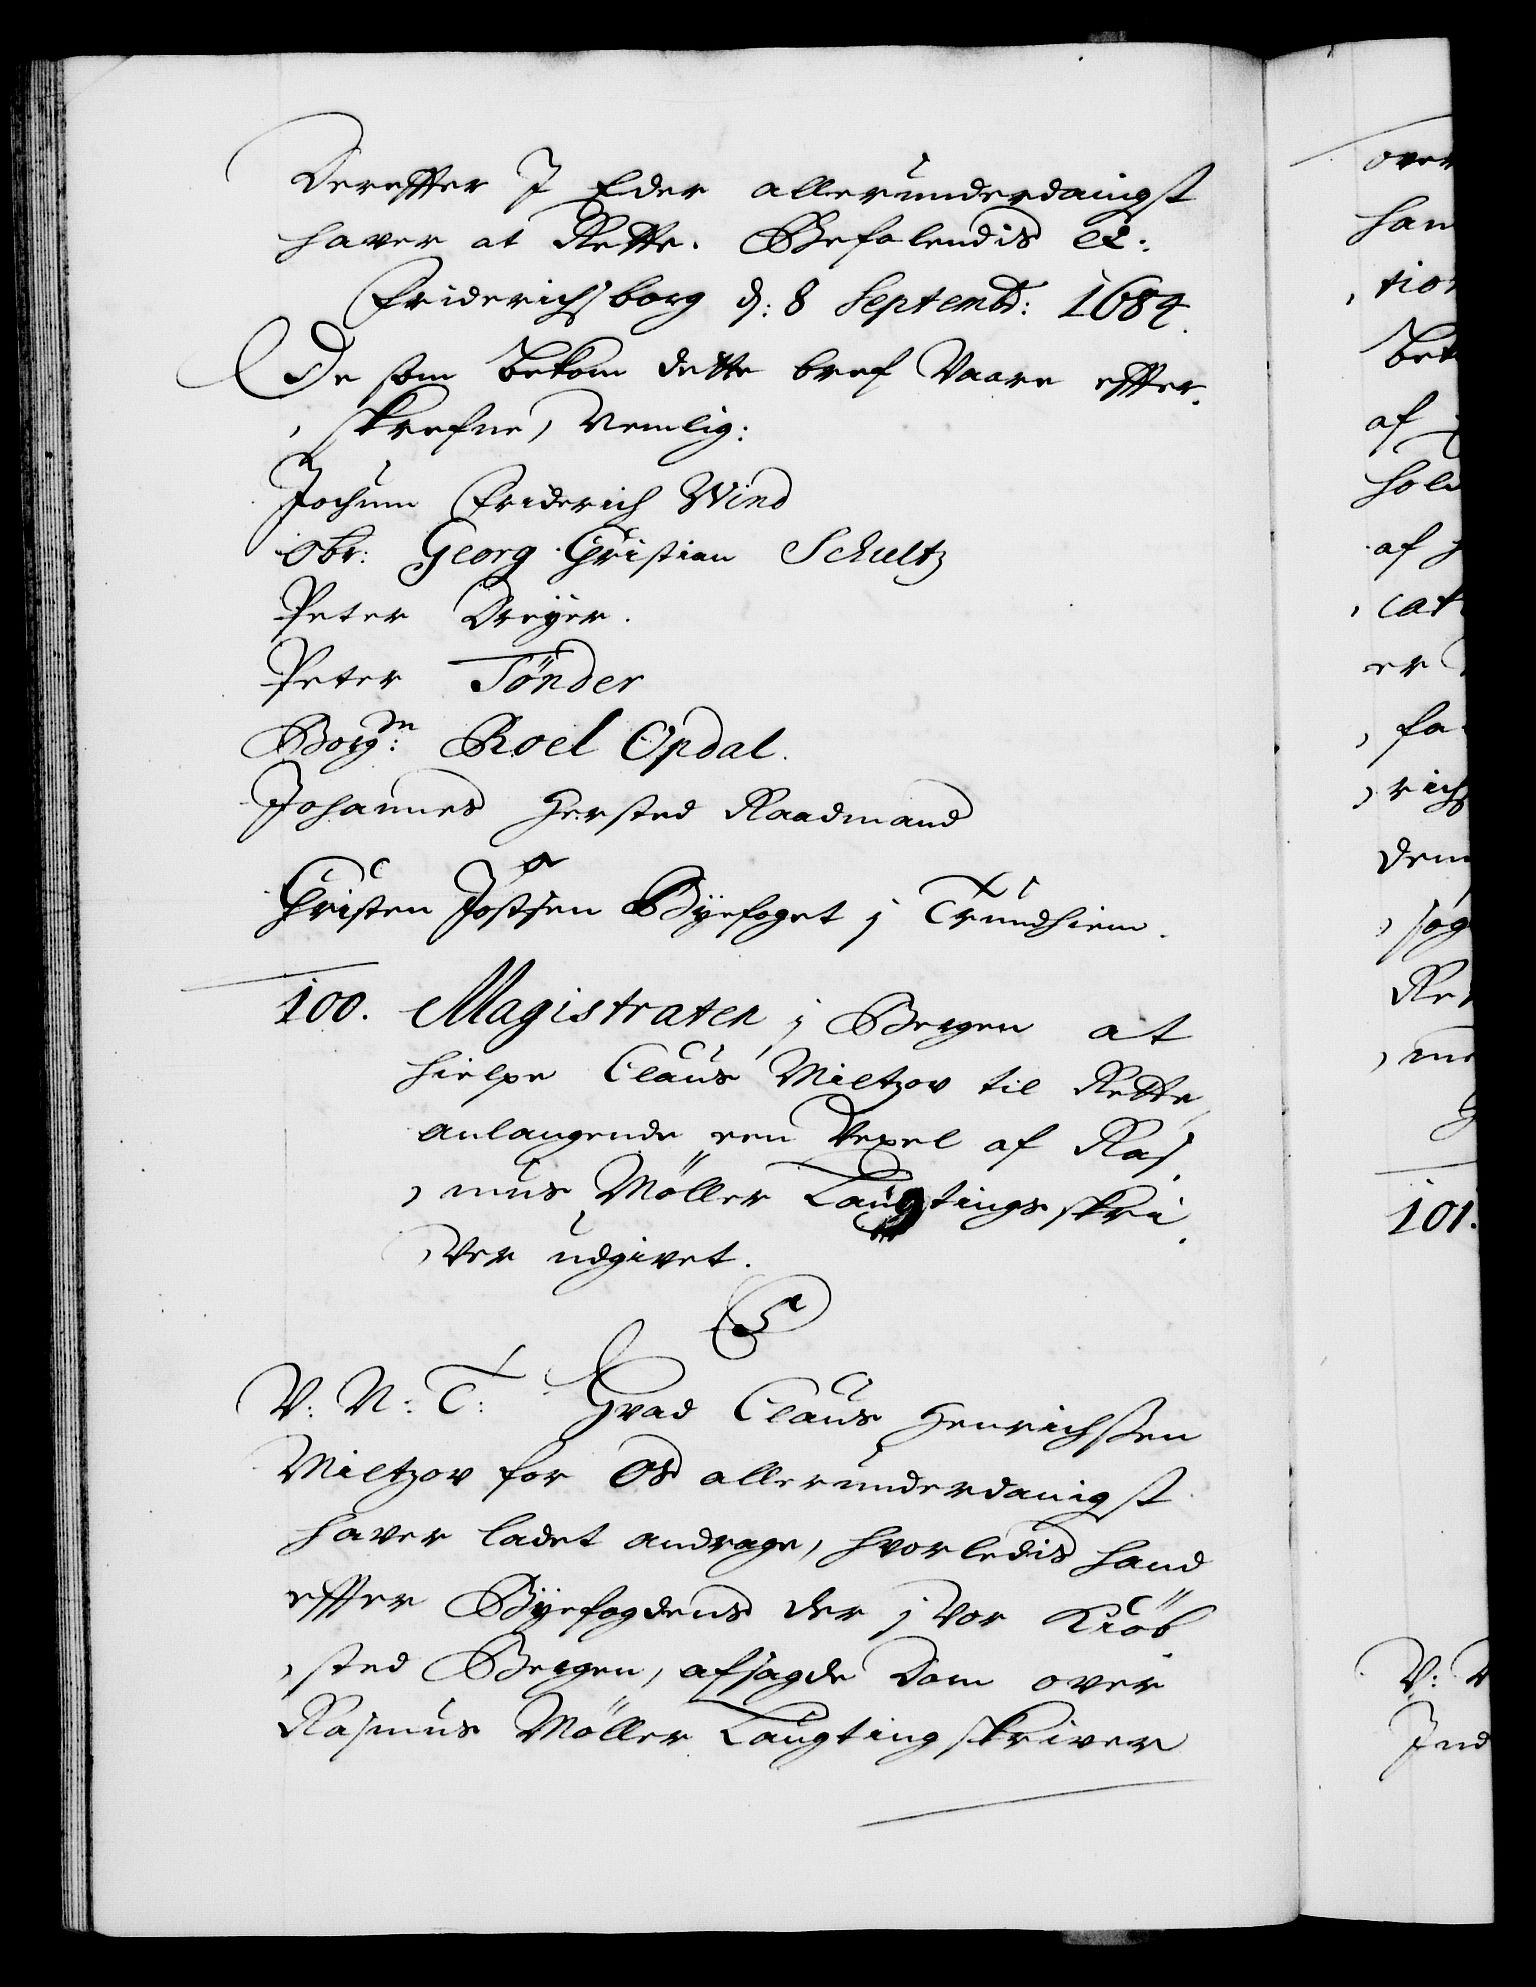 Dereffter I Eder allerunderdanigst
haver at Rette. Befalendis etc:
Friderichsborg d: 8 Septembr: 1684.
De som bekom dette bref Vaare effter-
skrefne, Nemlig:
Jochum Friderich Wind
Obr: Georg Christian Schultz
Peter Dreyer.
Peter Tönder
Borgm: Roel Opdal.
Johannes Hersted Raadmand
Christen Jostsen Byefoget j Trundhiem.
100. Magistraten j Bergen at
hielpe Claus Miltzov til Rette,
anlangende een Vexel af Ras-
mus Möller Laugtings skri-
ver udgivet.
C5
V: N: T: Hvad Claus Henrichssen
Miltzov for Os allerunderdanigst
haver ladet andrage, hvorledis hand
effter Byefogdens der j Vor Kiöb-
sted Bergen, afsagde Dom over
Rasmus Möller Laugtingskriver
over
han
tion
bet
af
hol
af
cat
er
fo
rich
dem
søg
Re
me
101.
V: N
Ind